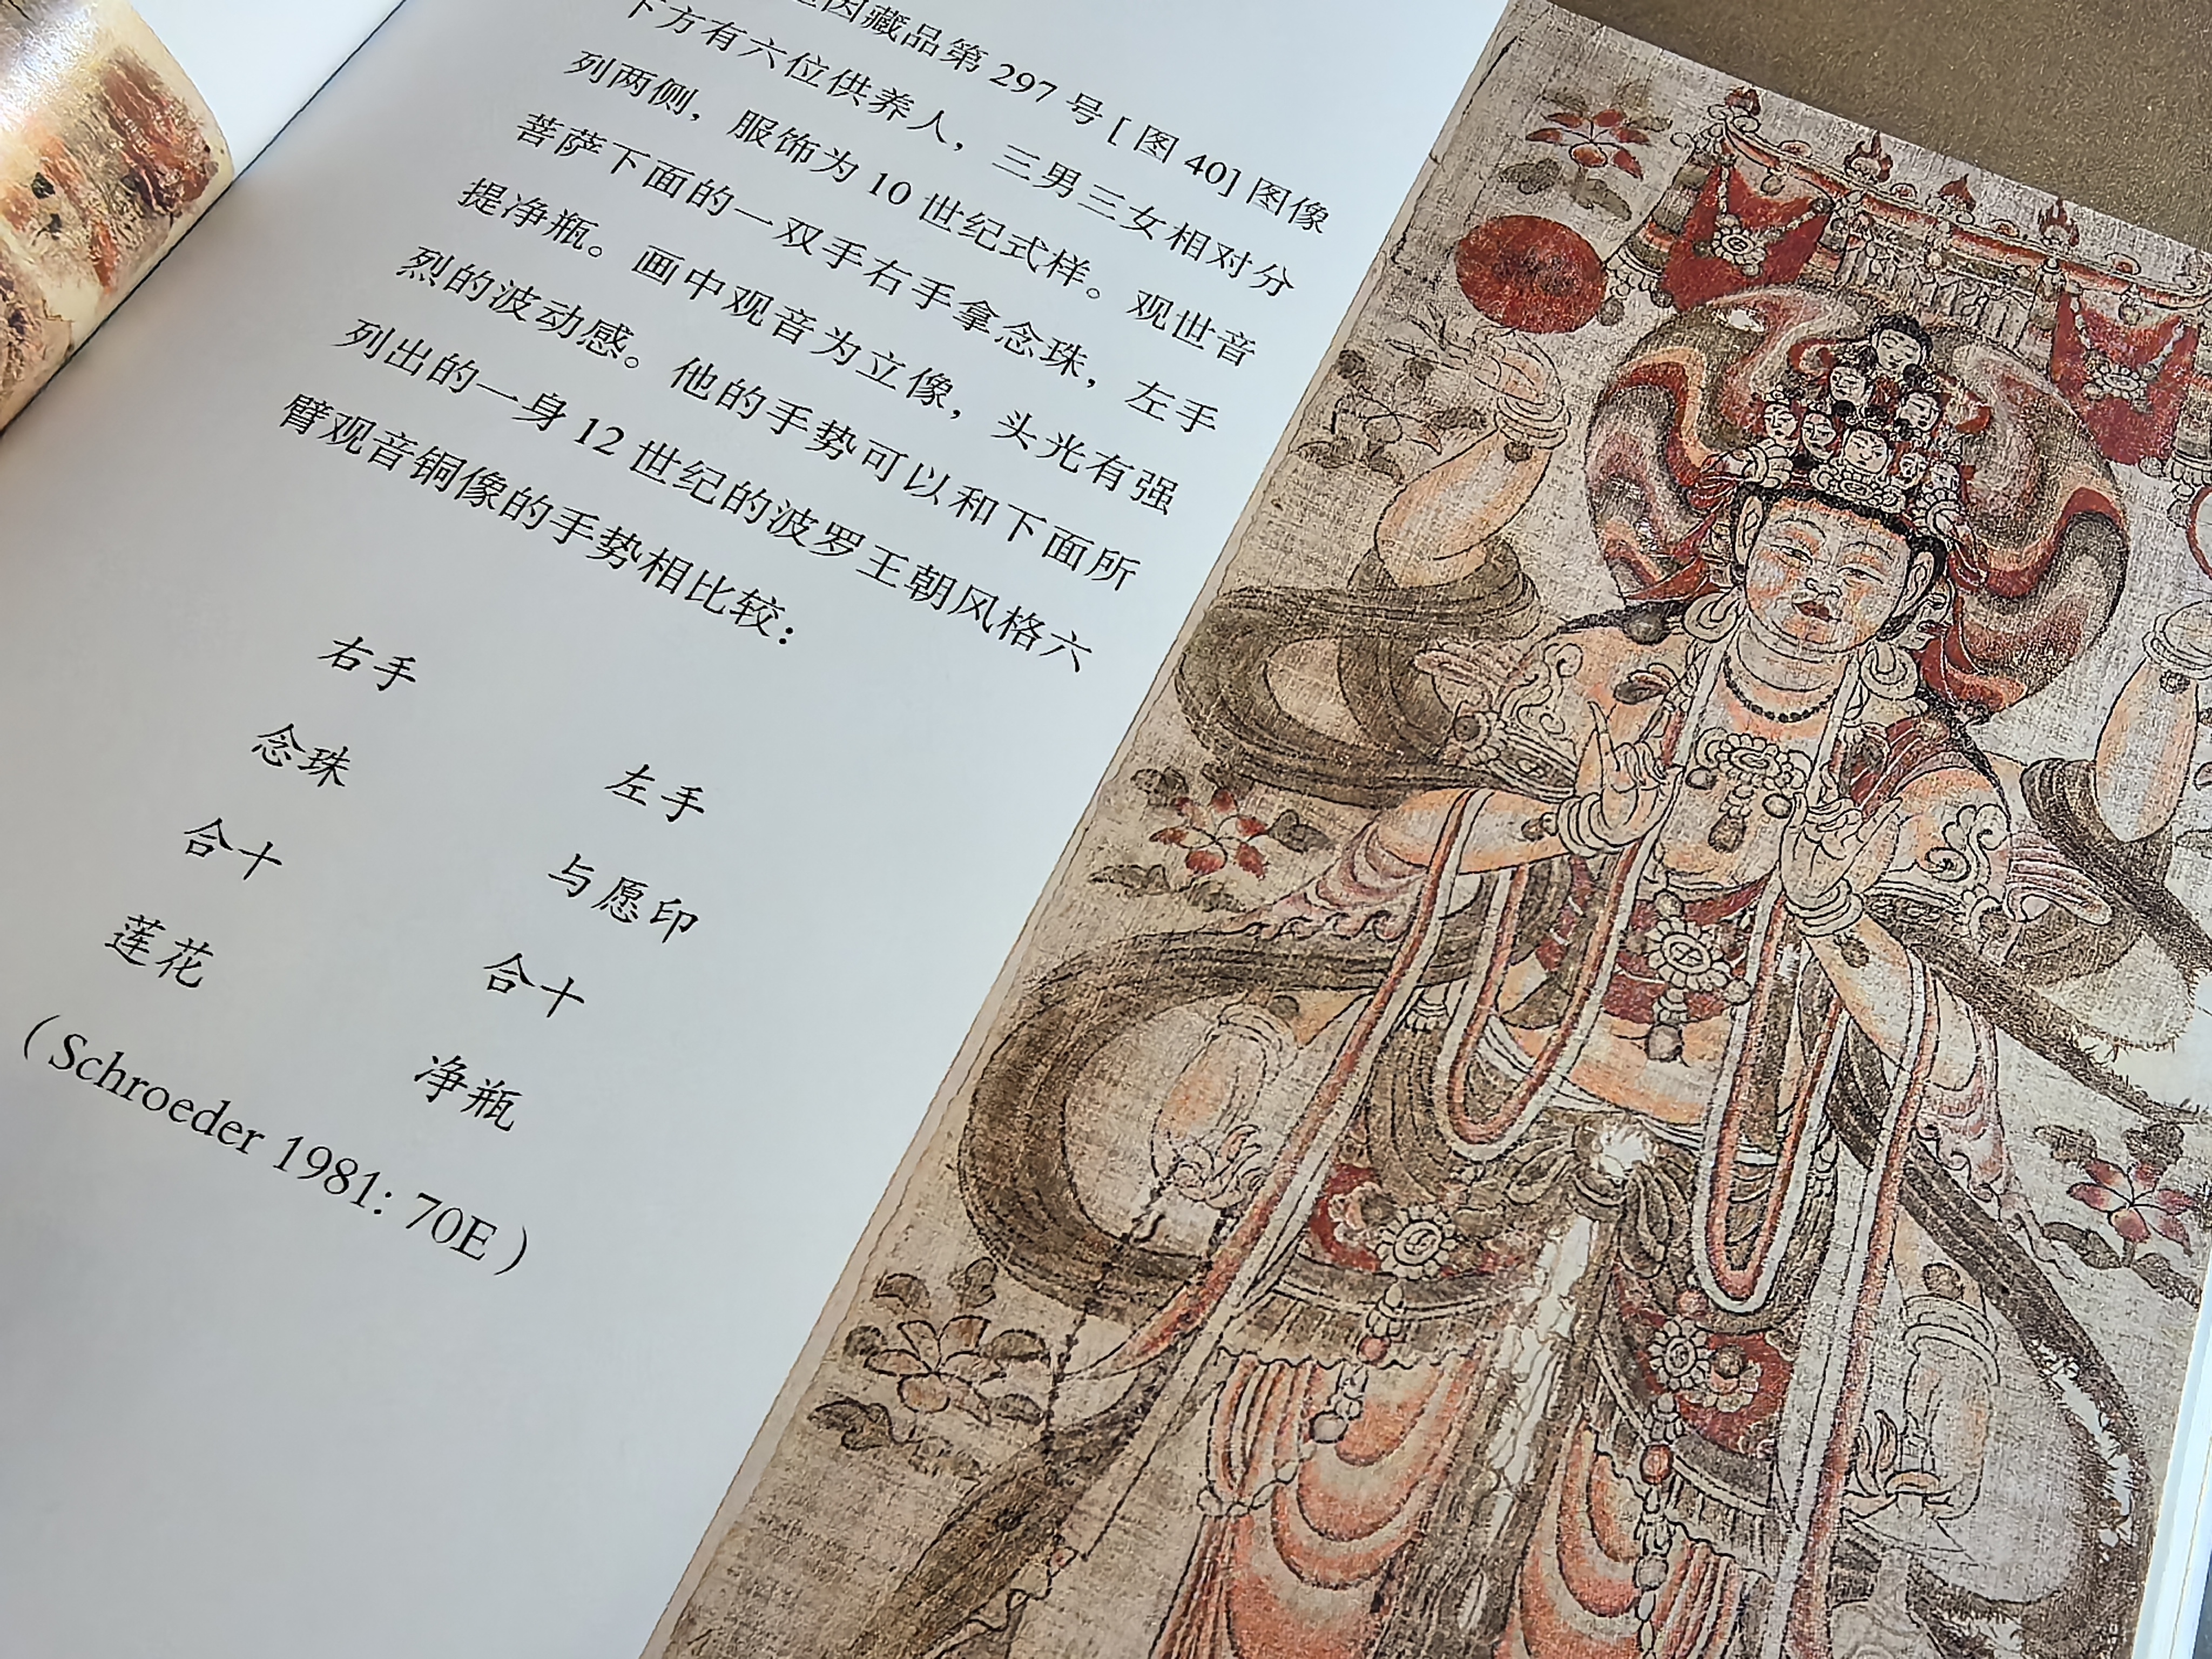 因藏品第 297 号 [ 图 40] 图像
下方有六位供养人，三男三女相对分
列两侧，服饰为 10 世纪式样。观世音
菩萨下面的一双手右手拿念珠，左手
提净瓶。画中观音为立像，头光有强
烈的波动感。他的手势可以和下面所
列出的一身 12 世纪的波罗王朝风格六
臂观音铜像的手势相比较：
右手 左手
念珠 与愿印
合十 合十
莲花 净瓶
（Schroeder 1981: 70E）